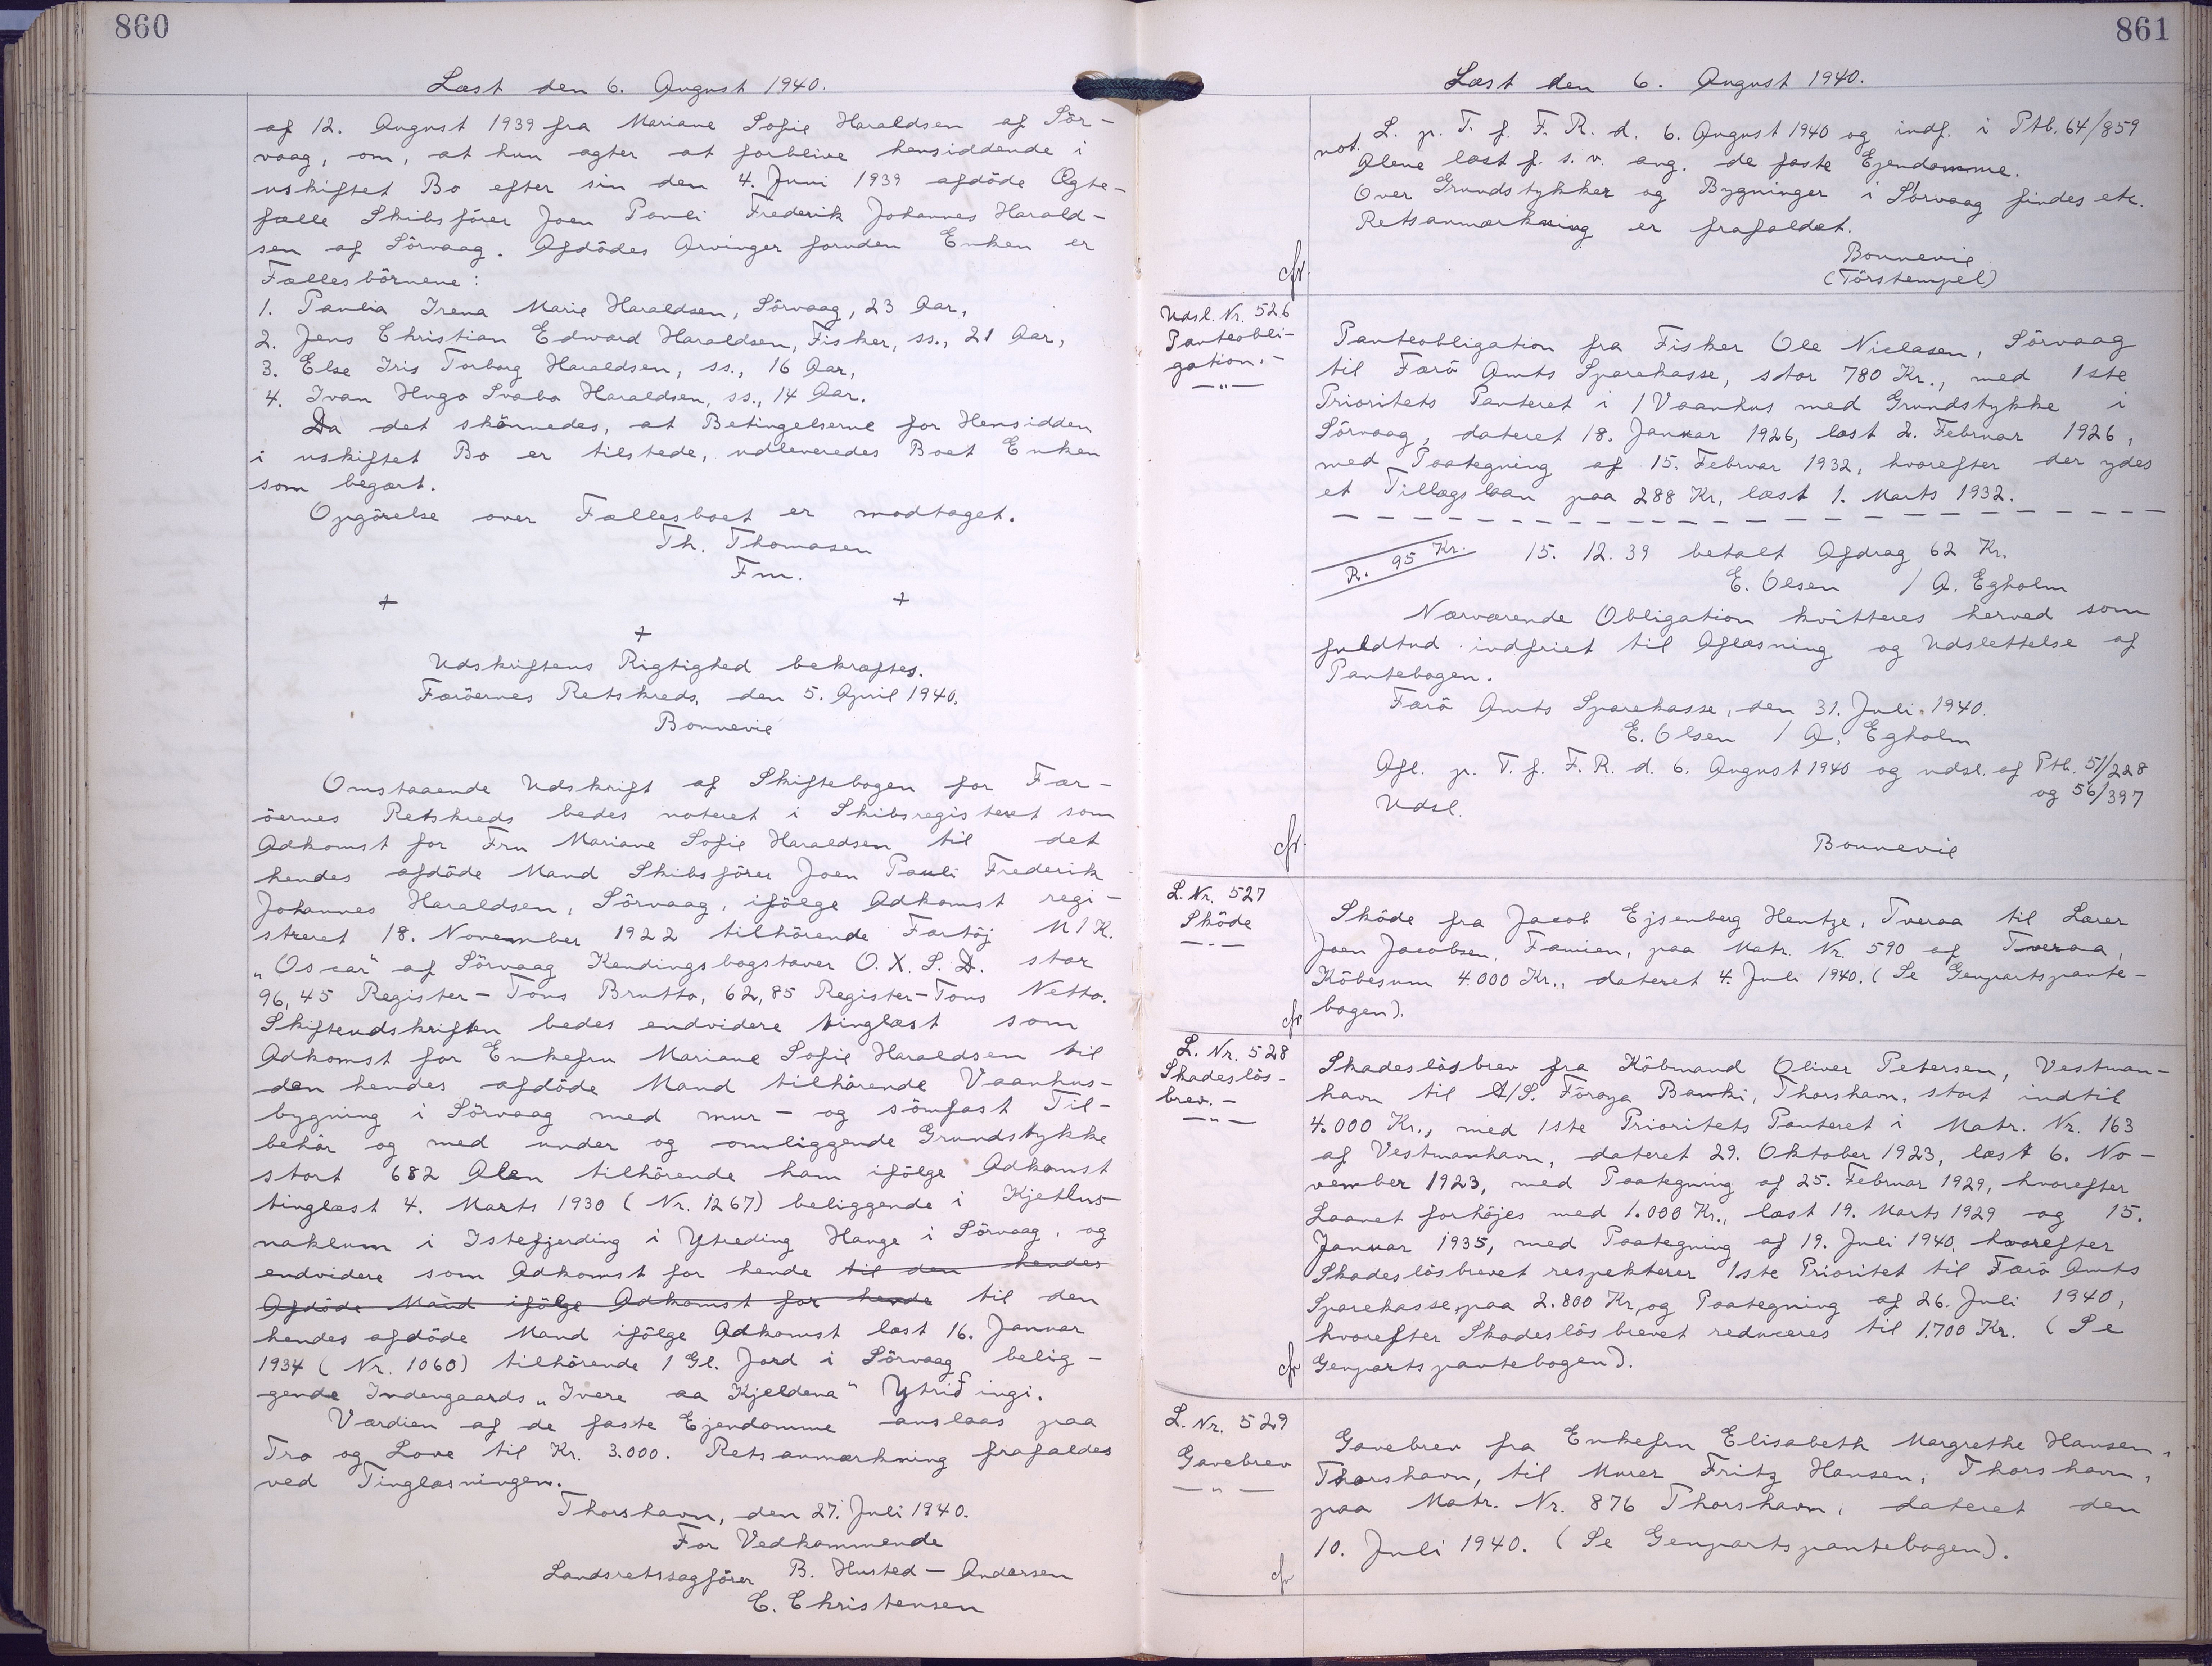 860
Læst den 6. August 1940.
af 12. August 1939 fra Mariane Sofie Haraldsen af Sör-
vaag, om, at hun agter at forblive hensiddende i
uskiftet Bo efter sin den 4. Juni 1939 afdöde Ægte-
fælle Skibsförer Joen Pauli Frederik Johannes Harald-
sen af Sörvaag. Afdödes Arvinger foruden Enken er
Fællesbörnene:
1. Paulia Irena Marie Haraldsen, Sörvaag, 23 Aar,
2. Jens Christian Edward Haraldsen, Fisker, ss., 21 Aar,
3. Else Iris Torborg Haraldsen, ss., 16 Aar,
4. Ivan Hugo Svabo Haraldsen, ss., 14 Aar.
Da det skönnedes, at Betingelserne for Hensidden
i uskiftet Bo er tilstede, udleveredes Boet Enken
som begært.
Opgörelse over Fællesboet er modtaget.
Th. Thomasen
Fm.
+ +
+
Udskriftens Rigtighed bekræftes.
Færöernes Retskreds, den 5. April 1940.
Bonnevie
Omstaaende Udskrift af Skiftebogen for Fær-
öernes Retskreds bedes noteret i Skibsregisteret som
Adkomst for Fru Mariane Sofie Haraldsen til det
hendes afdöde Mand Skibsförer Joen Pauli Frederik
Johannes Haraldsen, Sörvaag, ifölge Adkomst regi-
streret 18. November 1922 tilhörende Fartöj M/K.
"Oscar" af Sörvaag Kendingsbogstaver O. X. S. D. stor
96,45 Register-Tons Brutto, 62,85 Register-Tons Netto.
Skifteudskriften bedes endvidere tinglæst som
Adkomst for Enkefru Mariane Sofie Haraldsen til
den hendes afdöde Mand tilhörende Vaanhus-
bygning i Sörvaag med mur- og sömfast Til-
behör og med under og omliggende Grundstykke
stort 682 Alen tilhörende ham ifölge Adkomst
tinglæst 4. Marts 1930 (Nr. 1267) beliggende i Kjetlus-
naklum i Istefjerding i Ytreding Hauge i Sörvaag, og
endvidere som Adkomst for hende til den hendes
Afdöde Mand ifölge Adkomst for hende til den
hendes afdöde Mand ifölge Adkomst læst 16. Januar
1934 (Nr. 1060) tilhörende 1 Gl. Jord i Sörvaag belig-
gende Indengaards "Ivere aa Kjeldena" Ytrifingi.
Værdien af de faste Ejendomme anslaas paa
Tro og Love til Kr. 3.000. Retsanmærkning frafaldes
ved Tinglæsningen.
Thorshavn, den 27. Juli 1940.
For Vedkommende
Landsretssagförer B. Husted-Andersen
E. Christensen
861
Læst den 6. August 1940.
not. L. p. T. f. F. R. d. 6. August 1940 og indf. i Ptb. 64/859
Alene læst f. s. v. ang. de faste Ejendomme.
Over Grundstykker og Bygninger i Sörvaag findes etc.
Retsanmærkning er frafaldet.
Bonnevie
(Törstempel)
cfr.
Udsl. Nr. 526
Panteobli-
gation.-
—"—
Panteobligation fra Fisker Ole Niclasen, Sörvaag
til Færö Amts Sparekasse, stor 780 Kr., med 1ste
Prioritets Panteret i 1 Vaanhus med Grundstykke i
Sörvaag, dateret 18. Januar 1926, læst 2. Februar 1926,
med Paategning af 15. Februar 1932, hvorefter der ydes
et Tillægslaan paa 288 Kr., læst 1. Marts 1932.
R. 95 Kr. 15. 12. 39 betalt Afdrag 62 Kr.
E. Olsen / A. Egholm
Nærværende Obligation kvitteres herved som
fuldtud indfriet til Aflæsning og Udslettelse af
Pantebogen.
Færö Amts Sparekasse, den 31. Juli 1940.
E. Olsen / A. Egholm
Afl. p. T. f. F. R. d. 6. August 1940 og udsl. af Ptb. 51/228
og 56/397
Udsl.
Bonnevie
cfr.
L. Nr. 527
Sköde
—"—
Sköde fra Jacob Ejsenberg Hentze, Tveraa til Lærer
Joen Jacobsen, Famien, paa Matr. Nr. 590 af Tveraa,
Köbesum 4.000 Kr., dateret 4. Juli 1940. (Se Genpartspante-
bogen).
cfr
L. Nr. 528
Skadeslös-
brev.-
—"—
Skadeslösbrev fra Köbmand Oliver Petersen, Vestman-
havn til A/S. Föroya Banki, Thorshavn, stort indtil
4.000 Kr., med 1ste Prioritets Panteret i Matr. Nr. 163
af Vestmanhavn, dateret 29. Oktober 1923, læst 6. No-
vember 1923, med Paategning af 25. Februar 1929, hvorefter
Laanet forhöjes med 1.000 Kr., læst 19. Marts 1929 og 15.
Januar 1935, med Paategning af 19. Juli 1940, hvorefter
Skadeslösbrevet respekterer 1ste Prioritet til Færö Amts
Sparekasse, paa 2.800 Kr, og Paategning af 26. Juli 1940,
hvorefter Skadeslösbrevet reduceres til 1.700 Kr. (Se
Genpartspantebogen).
cfr
L. Nr. 529
Gavebrev
—"—
Gavebrev fra Enkefru Elisabeth Margrethe Hansen,
Thorshavn, til Murer Fritz Hansen, Thorshavn,
paa Matr. Nr. 876 Thorshavn, dateret den
10. Juli 1940. (Se Genpartspantebogen).
cfr